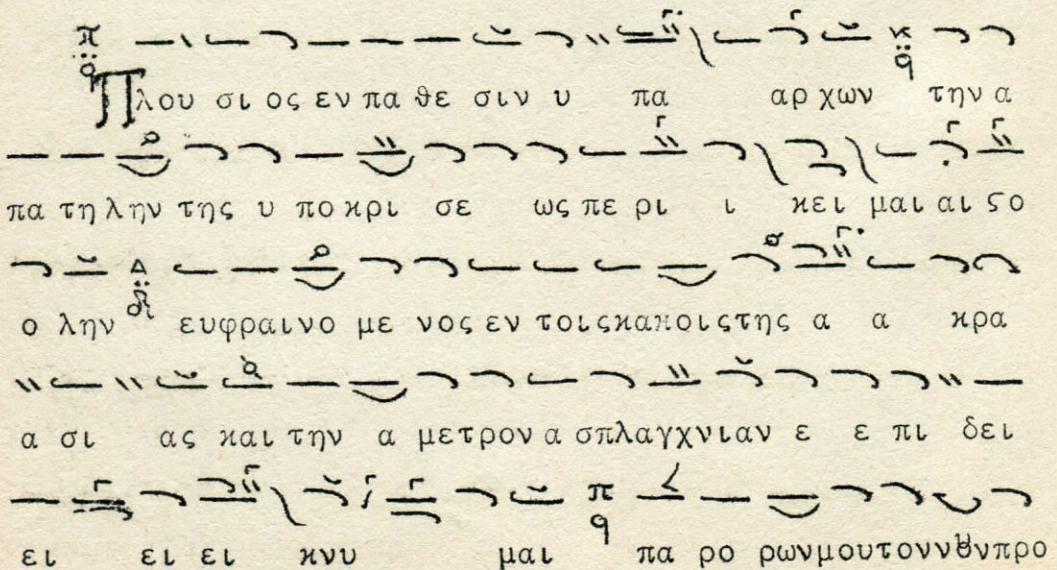 Πλου σι ος εν πα θε σιν υ πα αρ χων την α
πα τη λην της υ πο κρι σε ως πε ρι ι κει μαι αι ϛο
ο λην ευφραινο με νος εν τοις κακοις της α α κρα
α σι ας και την α μετρον α σπλαγχνιαν ε ε πι δει
ει ει ει κνυ μαι πα ρο ρων μου τον νουν προ